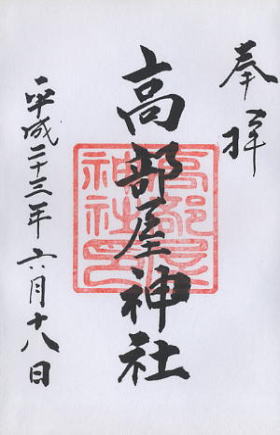 奉拝
高部屋神社
平成二十三年六月十八日
高部屋神社之印